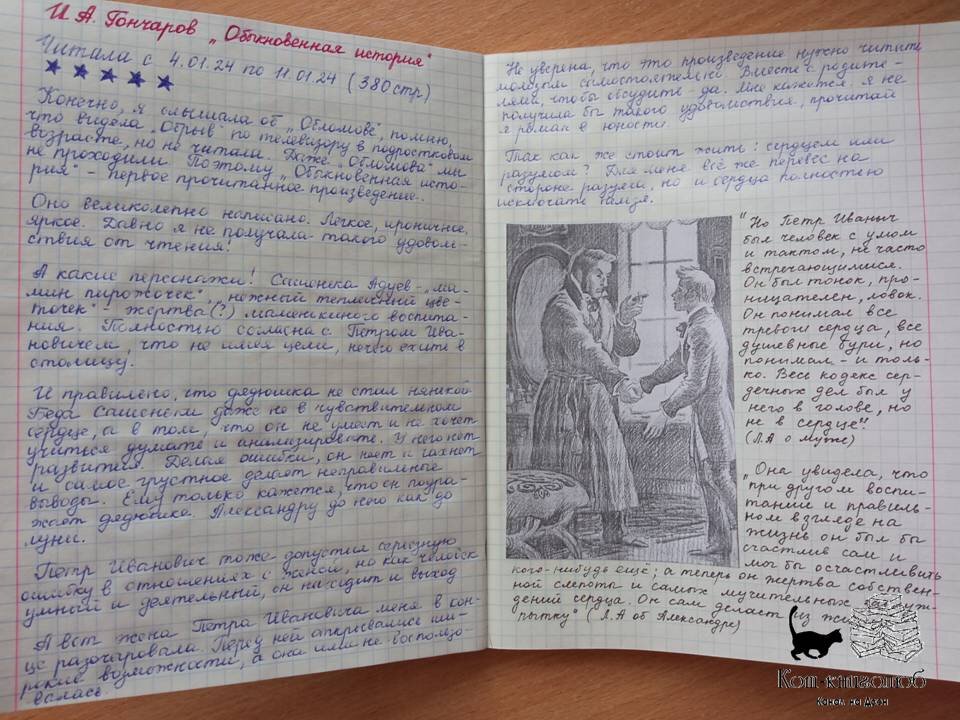 И. А. Гончаров „Обыкновенная история"
Читала с 4.01.24 по 11.01.24 (380 стр)
Конечно, я слышала об „Обломове", помню,
что видела „Обрыв" по телевизору в подростковом
возрасте, но не читала. Даже „Обломова" мы
не проходили. Поэтому „Обыкновенная исто-
рия" - первое прочитанное произведение.
Оно великолепно написано. Легкое, ироничное,
яркое. Давно я не получала такого удоволь-
ствия от чтения!
А какие персонажи! Сашенька Адуев - „ма-
мин пирожочек", „нежный тепличный цве-
точек" - жертва (?) маменькиного воспита-
ния. Полностью согласна с Петром Ива-
новичем, что не имея цели, нечего ехать в
столицу.
И правильно, что дядюшка не стал нянькой
Беда Сашеньки даже не в чувствительном
сердце, а в том, что он не умеет и не хочет
учиться думать и анализировать. У него нет
развития. Делая ошибки, он ноет и чахнет
и самое грустное делает неправильные
выводы. Ему только кажется, что он подра-
жает дядюшке. Александру до него как до
луны.
Петр Иванович тоже допустил серьезную
ошибку в отношениях с женой, но как человек
умный и деятельный, он находит и выход
А вот жена Петра Ивановича меня в кон-
це разочаровала. Перед ней открывались ши-
рокие возможности, а она ими не воспользо-
валась.
Не уверена, что это произведение нужно читать
молодым самостоятельно. Вместе с родите-
лями, чтобы обсудить - да. Мне кажется, я не
получила бы такого удовольствия, прочитай
я роман в юности.
Так как же стоит жить: сердцем или
разумом? Для меня всё же перевес на
стороне разума, но и сердца полностью
исключать нельзя.
"Но Петр Иваныч
был человек с умом
и тактом, не часто
встречающимися.
Он был тонок, про-
ницателен, ловок.
Он понимал все
тревоги сердца, все
душевные бури, но
понимал - и толь-
ко. Весь кодекс сер-
дечных дел был у
него в голове, но
не в сердце".
(Л.А о муже)
„Она увидела, что
при другом воспи-
тании и правиль-
ном взгляде на
жизнь он был бы
счастлив сам и
мог бы осчастливить
кого-нибудь ещё; а теперь он жертва собствен-
ной слепоты и самых мучительных заблуж-
дений сердца. Он сам делает из жизни
пытку" (Л.А об Александре)
Кот-книголюб
Канал на Дзен